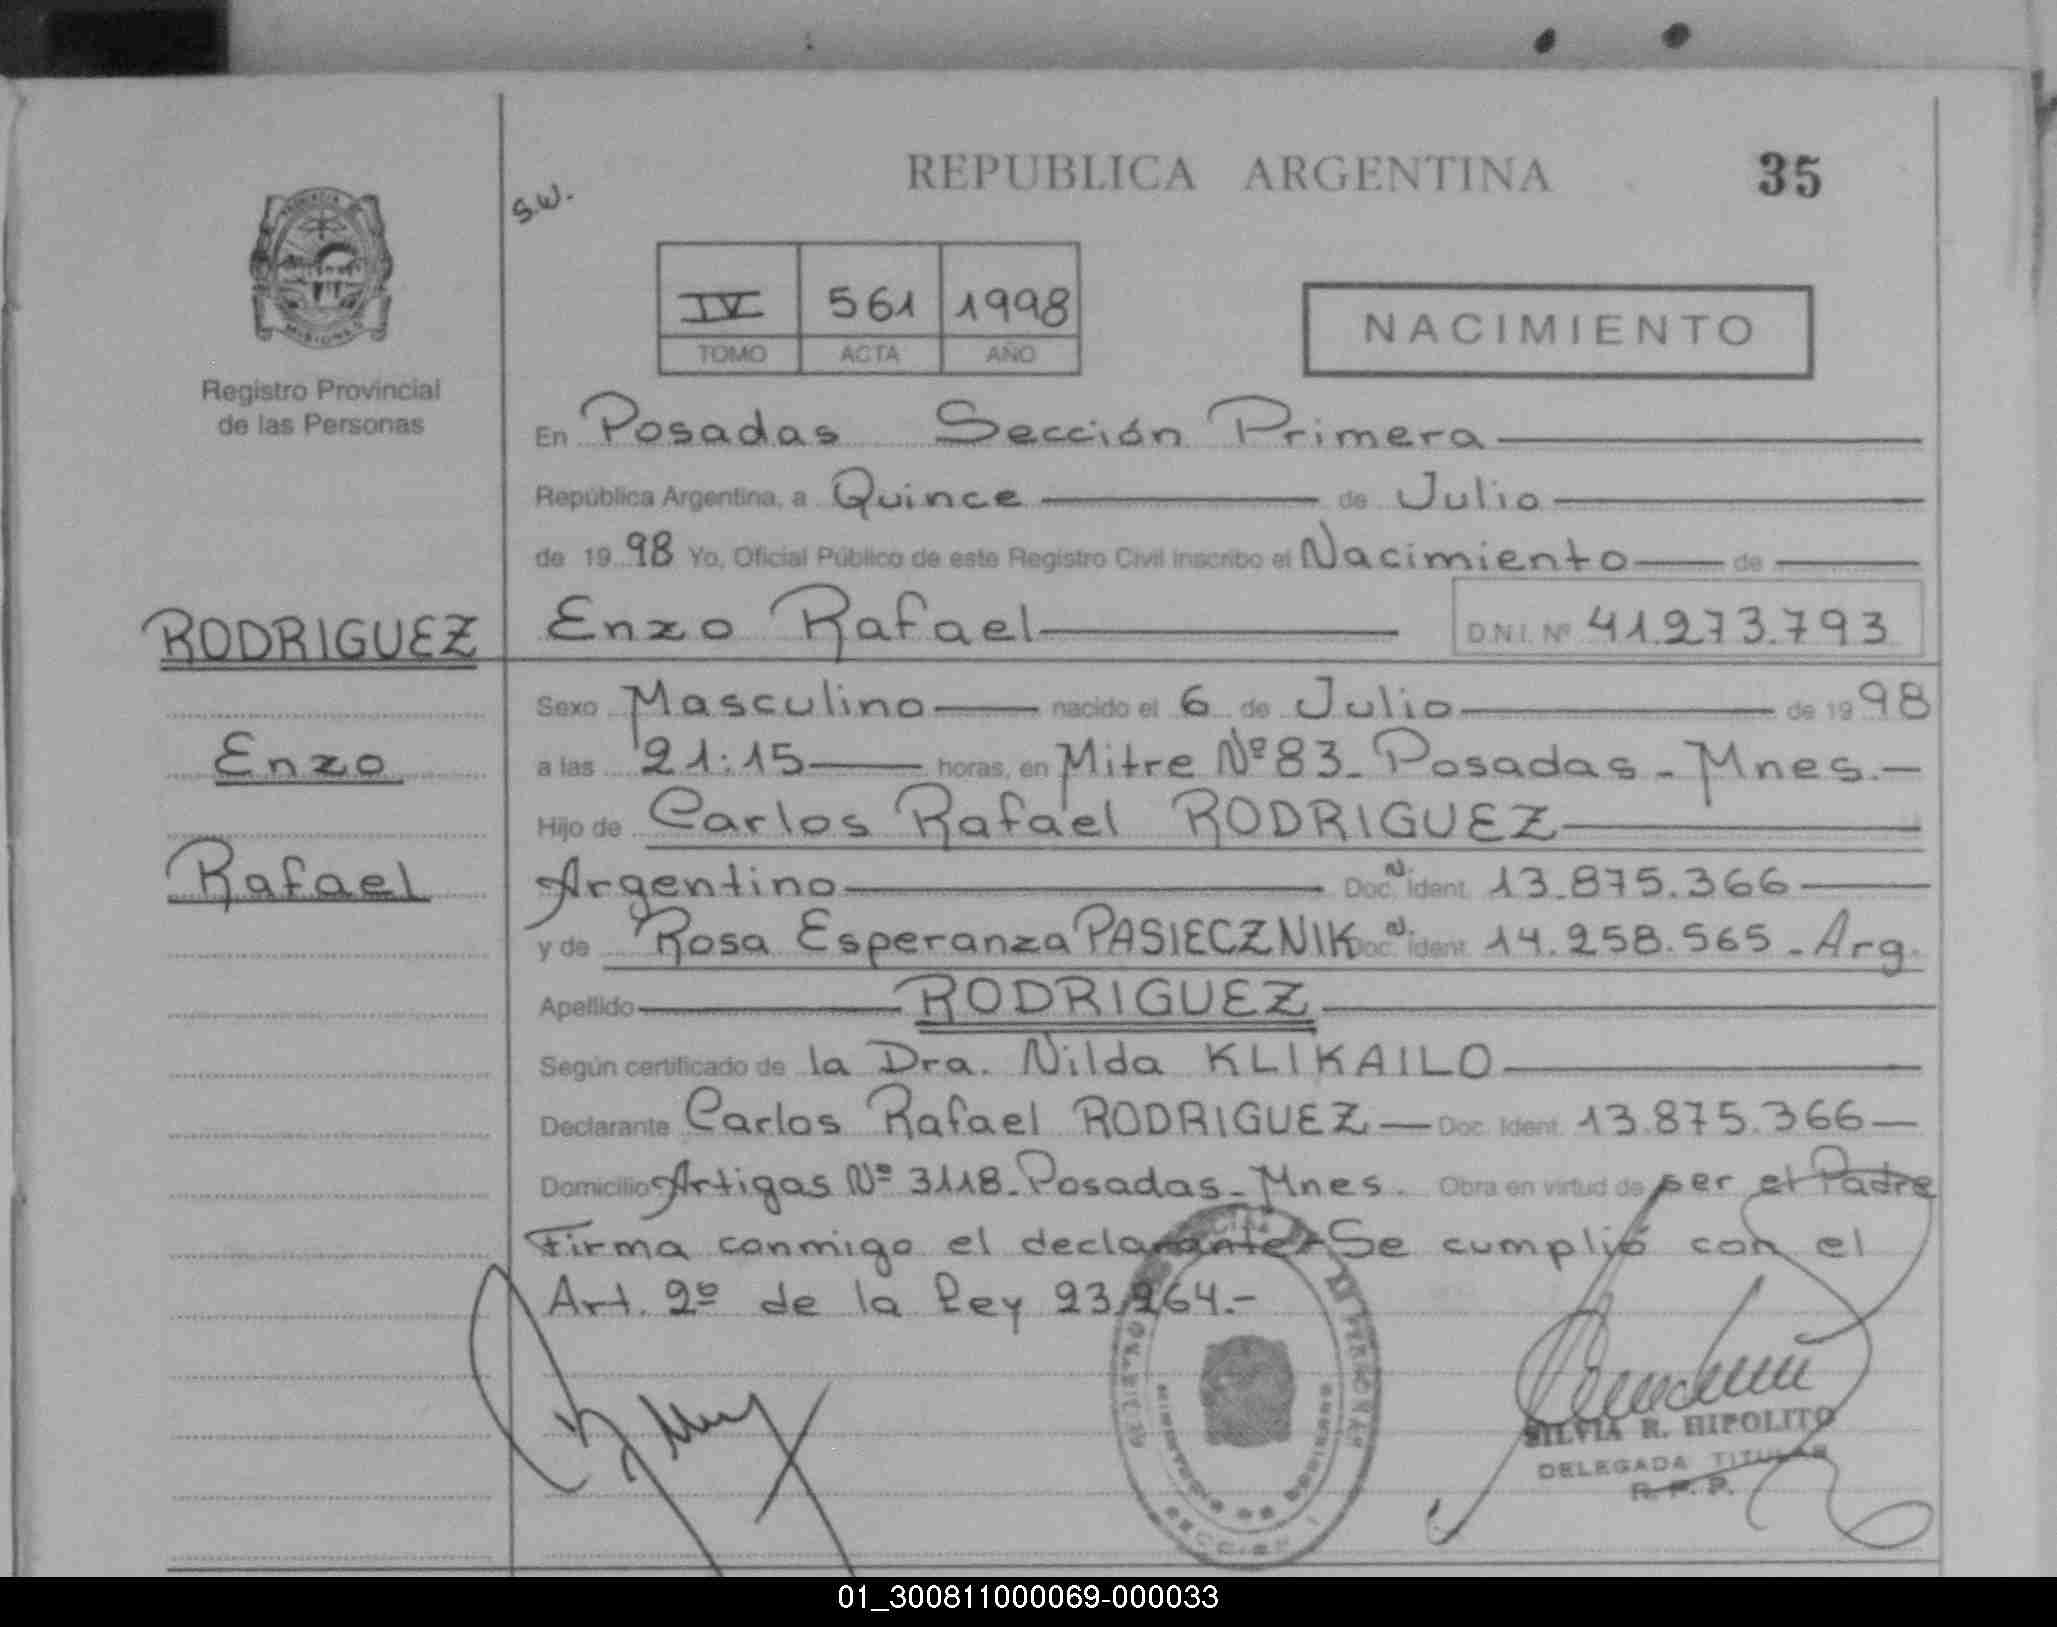 REPUBLICA ARGENTINA 35
S.W.
IV 561 1998
TOMO ACTA AÑO
NACIMIENTO
MISIONES
Registro Provincial
de las Personas
En Posadas Sección Primera
República Argentina, a Quince de Julio
de 19 98 Yo, Oficial Público de este Registro Civil inscribo el Nacimiento de
RODRIGUEZ
Enzo Rafael D.N.I. Nº 41.273.793
Sexo Masculino nacido el 6 de Julio de 19 98
Enzo
a las 21:15 horas, en Mitre Nº 83_ Posadas - Mnes.-
Hijo de Carlos Rafael RODRIGUEZ
Rafael
Argentino Doc. N Ident. 13.875.366
y de Rosa Esperanza PASIECZNIK Doc. N Ident. 14.258.565 - Arg.
Apellido RODRIGUEZ
Según certificado de la Dra. Nilda KLIKAILO
Declarante Carlos Rafael RODRIGUEZ Doc. Ident. 13.875.366
Domicilio Artigas Nº 3118_ Posadas - Mnes. Obra en virtud de ser el Padre
Firma conmigo el declarante - Se cumplió con el
Art. 2º de la Ley 23.264.-
SECCION 1
SILVIA R. HIPOLITO
DELEGADA TITULAR
R. P. P.
01_300811000069-000033